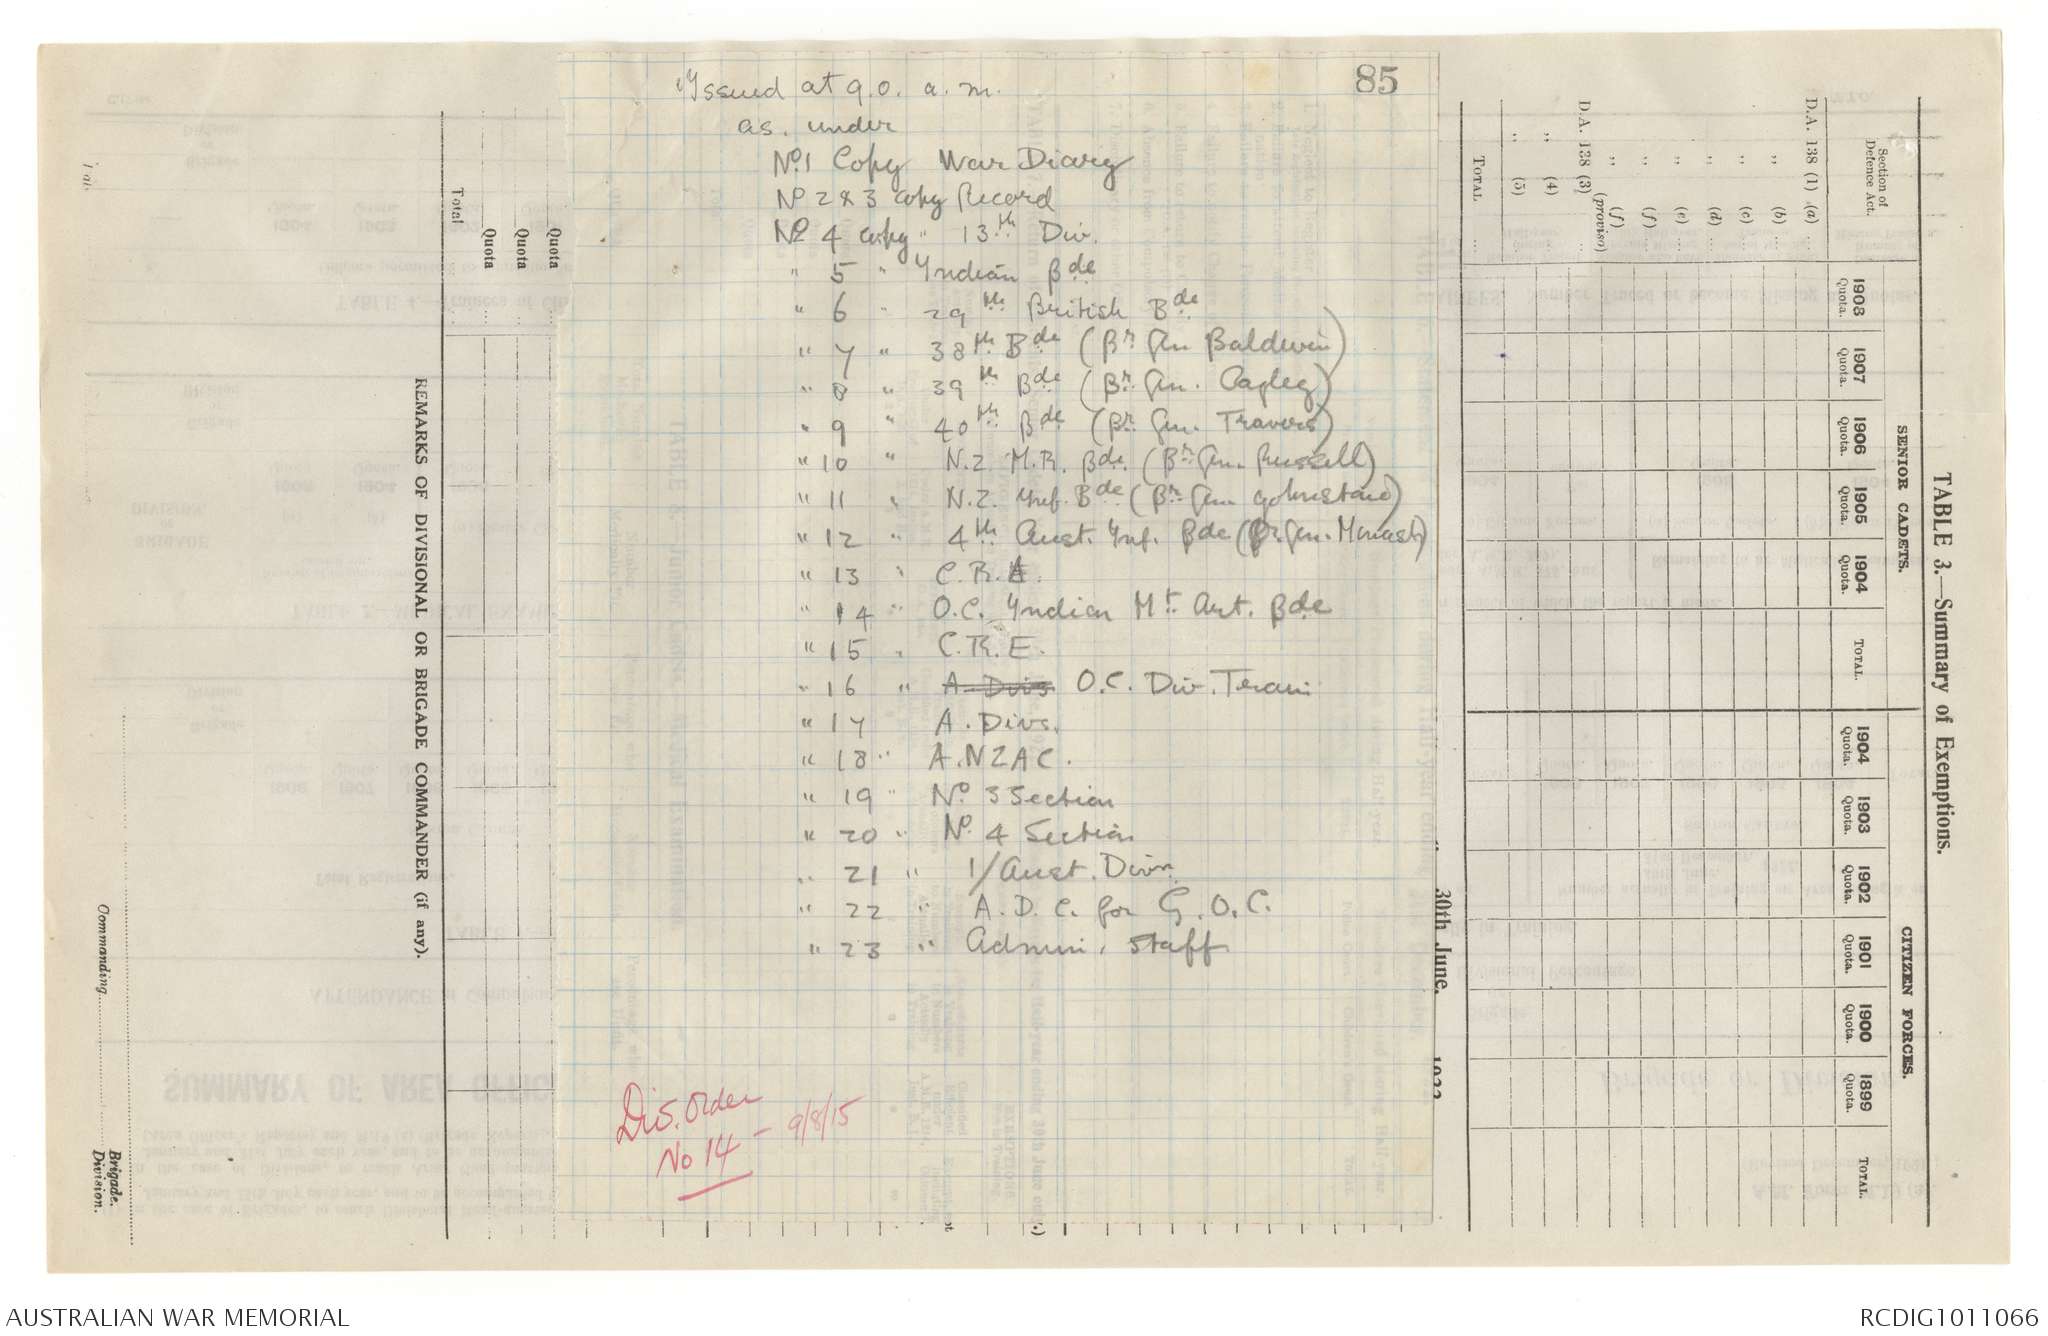 85
Issued at 9.0. a.m.
as. under
No. 1 Copy War Diary
No 2 & 3 copy Record
No. 4 copy " 13th Div.
" 5 " Indian Bde
" 6 " 29th British Bde
" 7 " 38th Bde (Br. Gen Baldwin)
" 8 " 39th Bde (Br. Gen. Cayley)
" 9 " 40th Bde (Br. Gen. Travers)
" 10 " N.Z. M.R. Bde. (Br. Gen. Russell)
" 11 " N.Z. Inf. Bde (Br. Gen Johnston)
" 12 " 4th Aust. Inf. Bde (Br. Gen. Monash)
" 13 " C.R.A.
" 14 " O.C. Indian Mt. Art. Bde
" 15 " C.R.E.
" 16 " A Divs O.C. Div. Train
" 17 A. Divs.
" 18 " A.NZAC.
" 19 " No. 3 Section
" 20 " No. 4 Section
" 21 " 1/Aust. Divn.
" 22 " A.D.C. for G.O.C.
" 23 " Admin. Staff
Div. Order
No 14 - 9/8/15
Total
Quota
Quota
Quota
REMARKS OF DIVISIONAL OR BRIGADE COMMANDER (if any).
Commanding
Brigade.
Division.
30th June,
TABLE 3.—Summary of Exemptions.
SENIOR CADETS.
CITIZEN FORCES.
Section of Defence Act.
1908 Quota.
1907 Quota.
1906 Quota.
1905 Quota.
1904 Quota.
TOTAL.
1904 Quota.
1903 Quota.
1902 Quota.
1901 Quota.
1900 Quota.
1899 Quota.
TOTAL.
D.A. 138 (1) (a) ...
" (b) ...
" (c) ...
" (d) ...
" (e) ...
" (f) ...
" (f) (proviso)
D.A. 138 (3) ...
" (4) ...
" (5) ...
TOTAL ...
AUSTRALIAN WAR MEMORIAL
RCDIG1011066